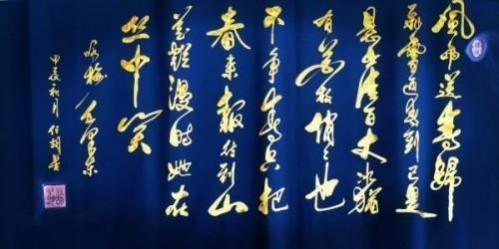 風雨送春歸
飛雪迎春到已是
悬崖百丈冰猶
有花枝俏々也
不争春只把
春来報待到山
花爛漫時她在
丛中笑
咏梅 毛澤东
甲辰秋月